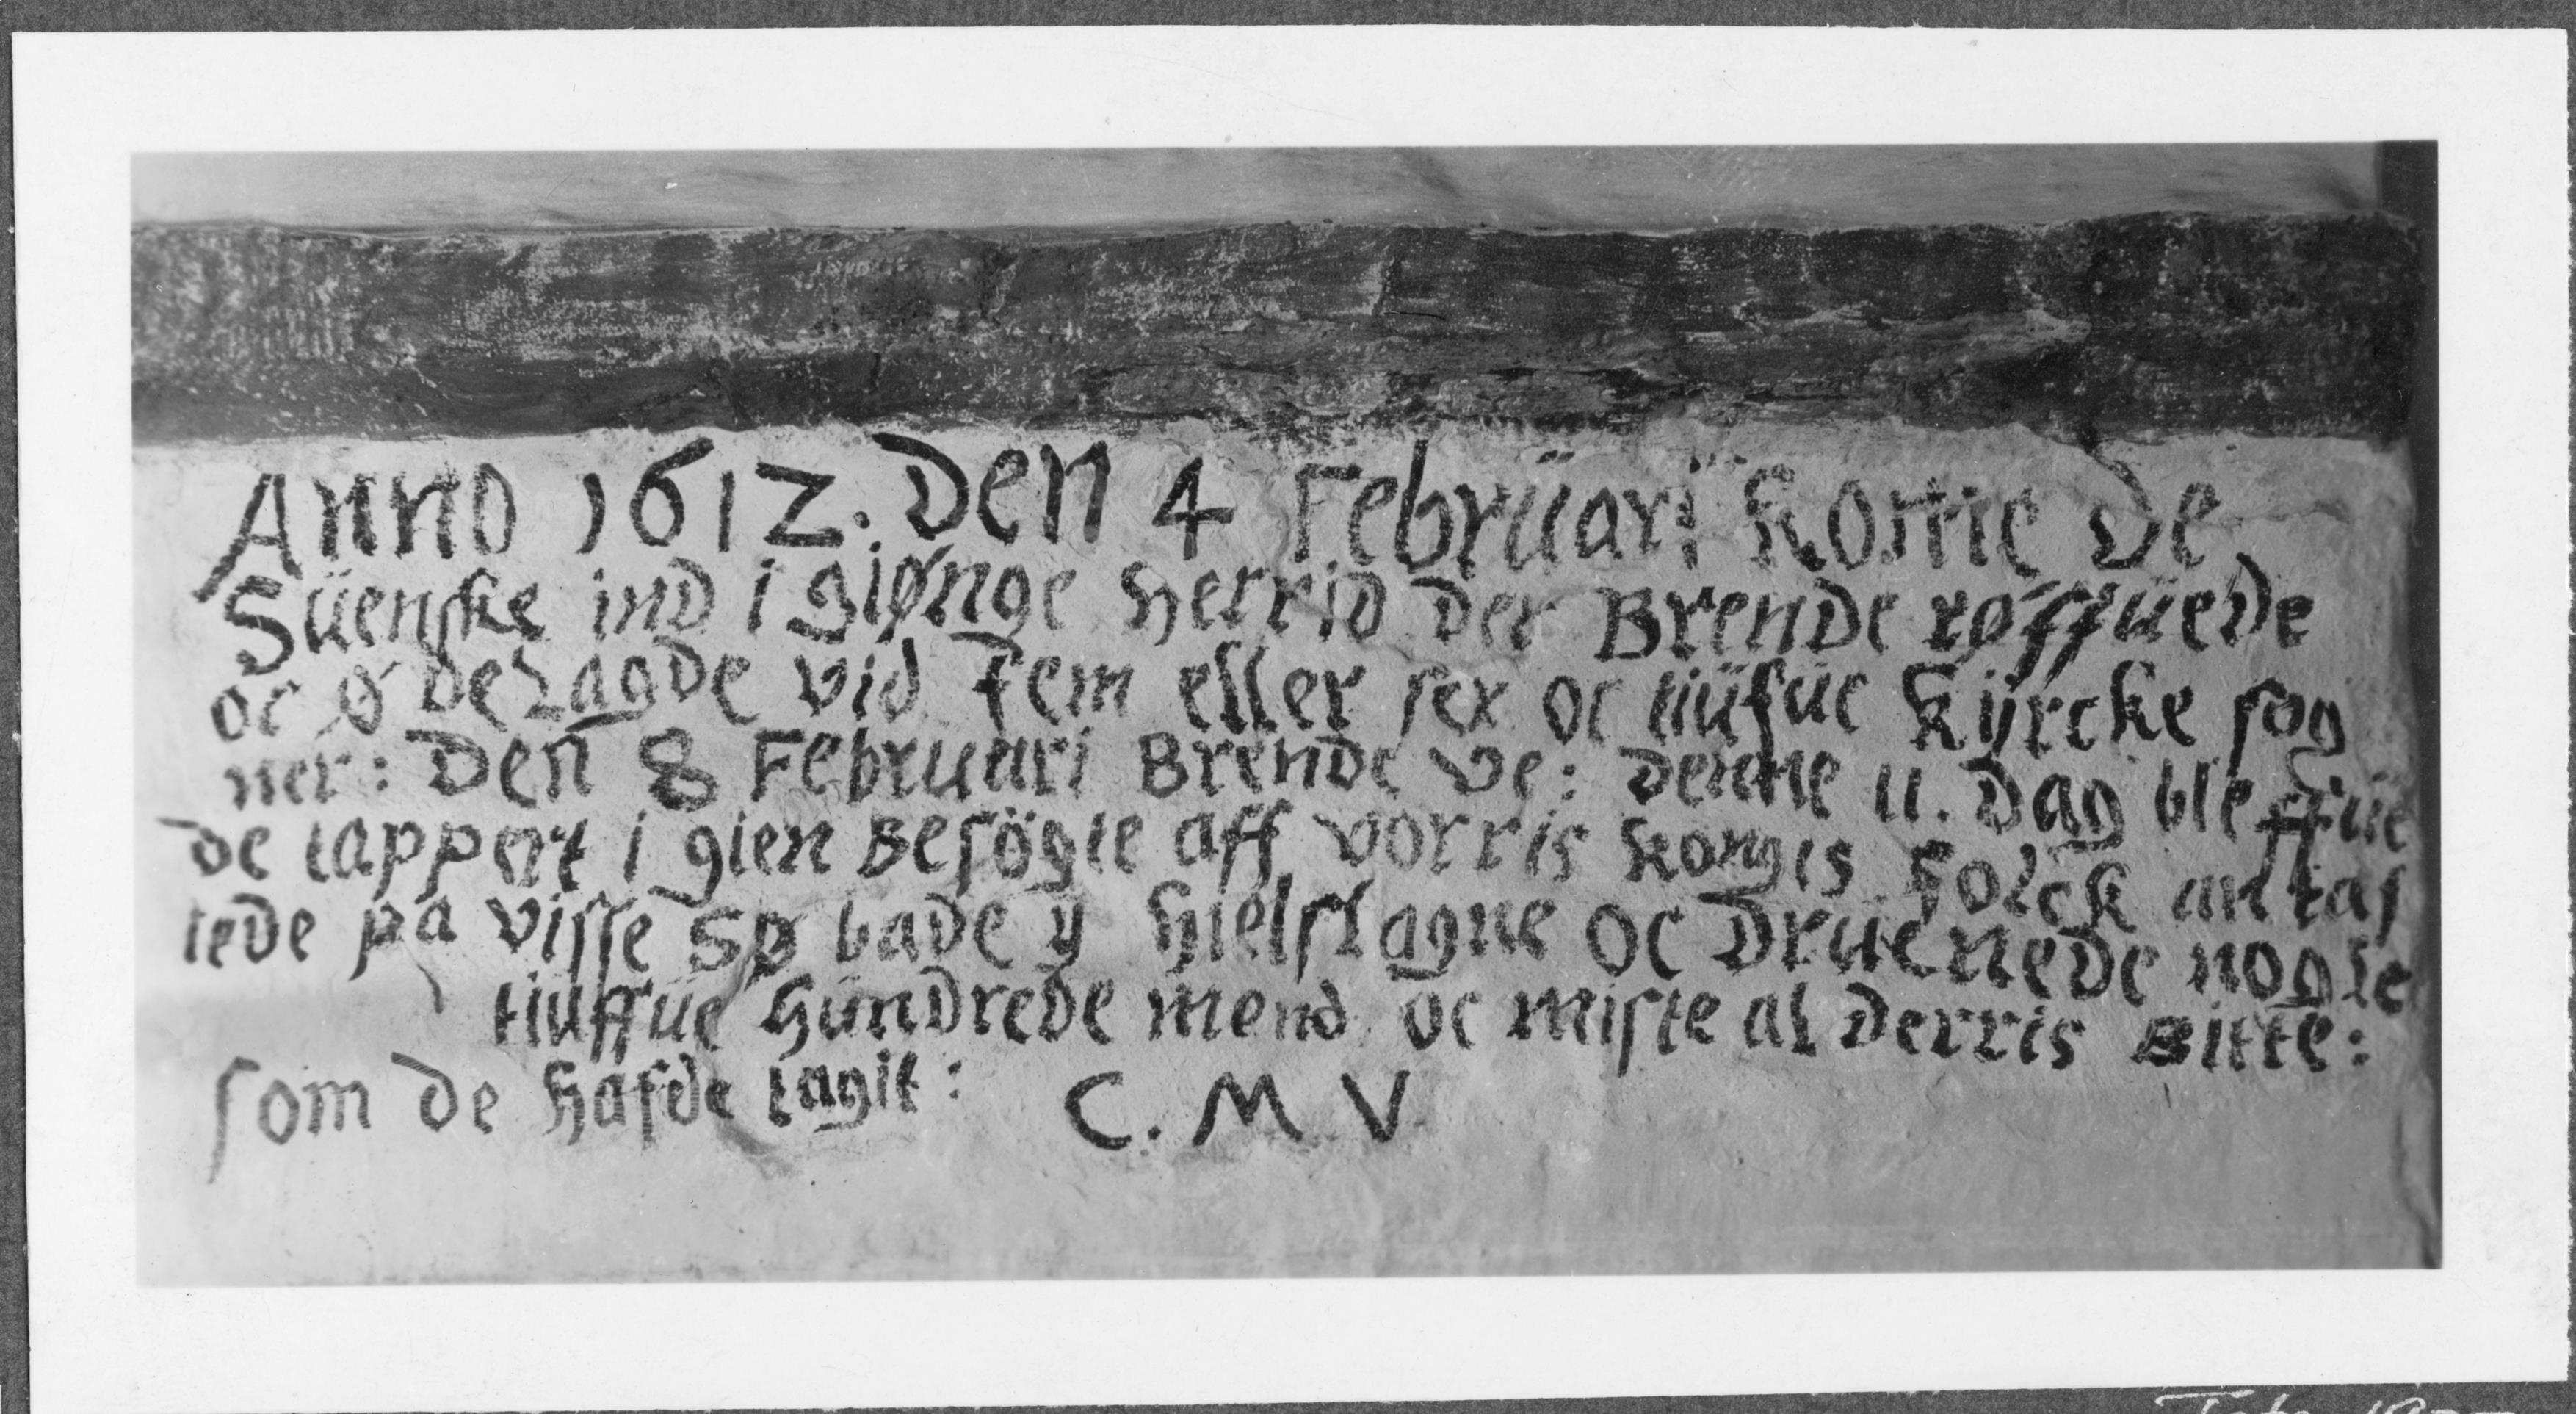 Anno 1612. Den 4 Februari komme de
Süenske ind i giønge herrid der Brende røffuede
oc ødelagde vid fem eller sex oc tiufue kyrcke sog
ner: Den 8 Februari Brende ve: denne 11. Dag bleffue
de tappert i gien Besögte aff vorris kongis Folck antas
tede pa visse Sø bade y hielslagne oc Druenede nogle
tiuffue hundrede mend oc miste al derris Bitte:
som de hafde tagit: C. M V